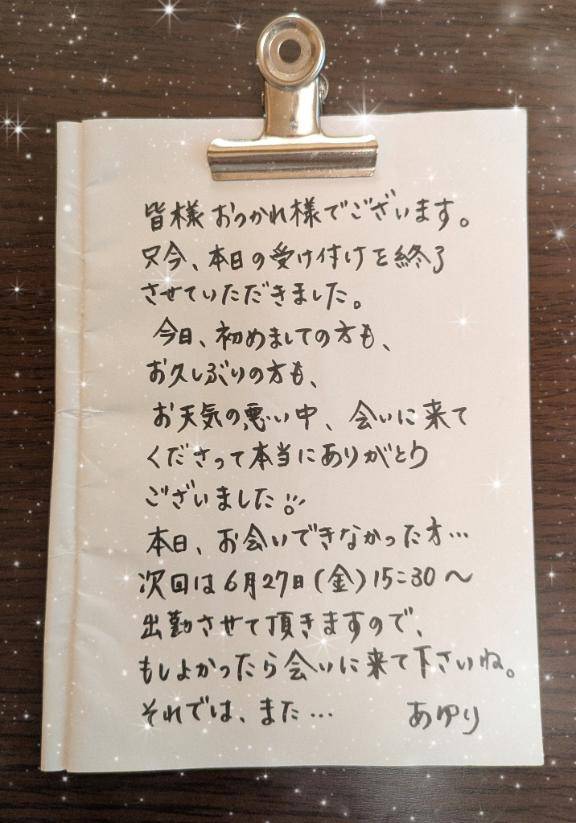 皆様 おつかれ様でございます。
只今、本日の受け付けを終了
させていただきました。
今日、初めましての方も、
お久しぶりの方も、
お天気の悪い中、会いに来て
くださって本当にありがとう
ございました!!
本日、お会いできなかった方…
次回は6月27日(金)15:30～
出勤させて頂きますので、
もしよかったら会いに来て下さいね。
それでは、また… あゆり